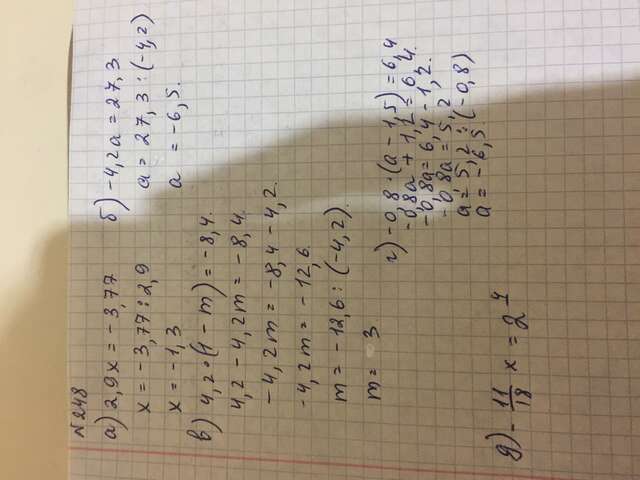 №248
а) 2,9x = -3,77
x = -3,77 : 2,9
x = -1,3
б) -4,2a = 27,3
a = 27,3 : (-4,2)
a = -6,5.
в) 4,2·(1 - m) = -8,4.
4,2 - 4,2m = -8,4.
-4,2m = -8,4 - 4,2.
-4,2m = -12,6.
m = -12,6 : (-4,2).
m = 3
г) -0,8·(a - 1,5) = 6,4
-0,8a + 1,2 = 6,4.
-0,8a = 6,4 - 1,2.
-0,8a = 5,2,
a = 5,2 : (-0,8)
a = -6,5
g) -11/18 x = 2